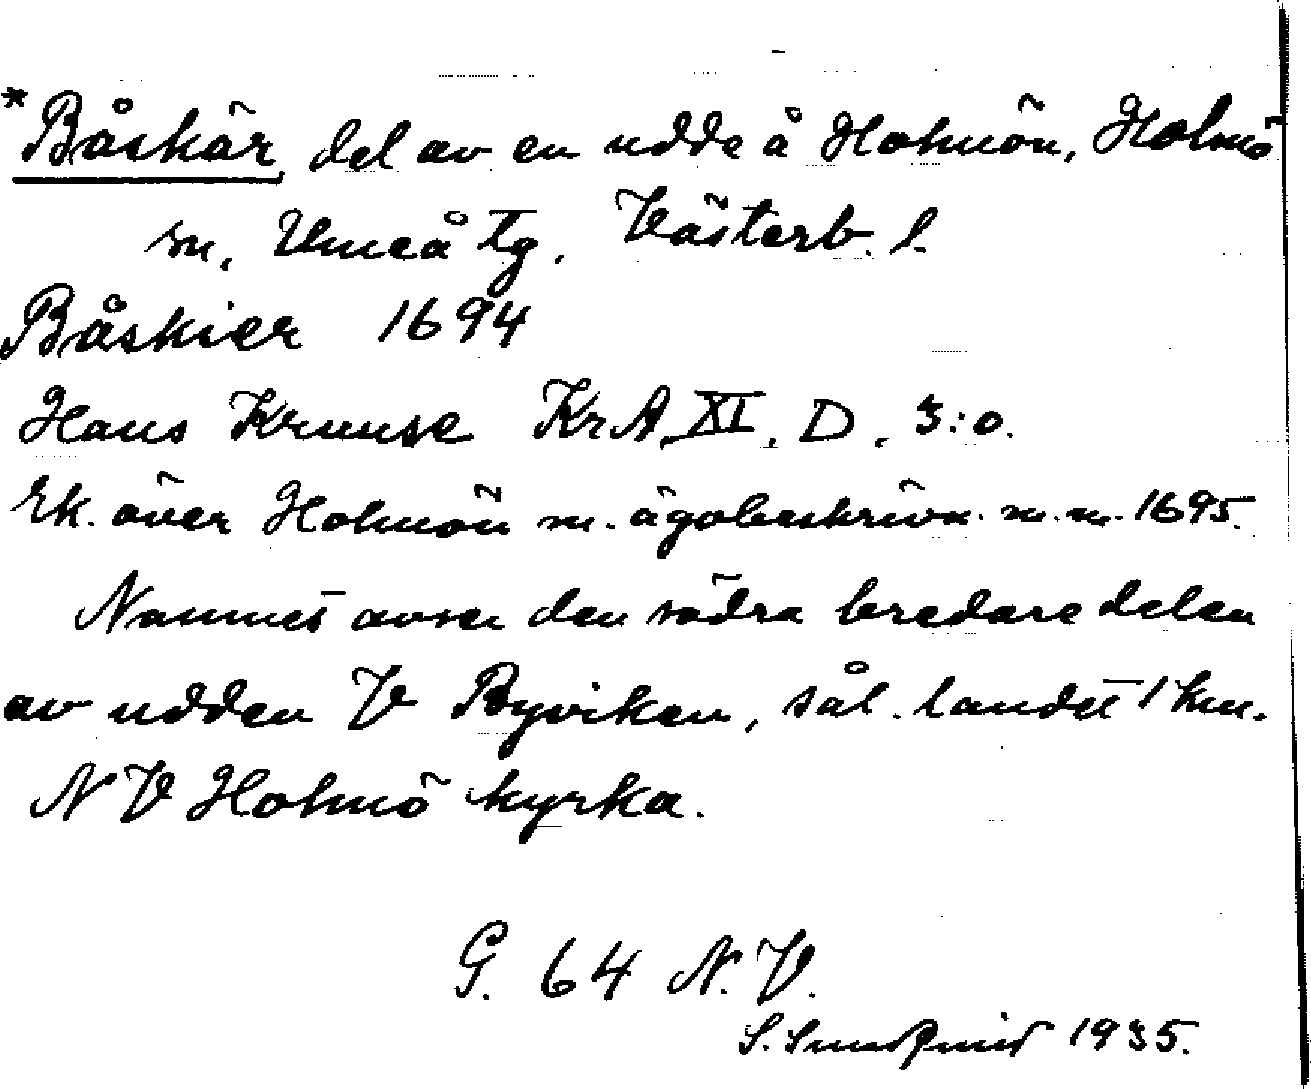 *Båskär, del av en udde å Holmön, Holmö
sn, Umeå tg. Västerb. l.
Båskier 1694
Hans Kruuse KrA, XI, D, 3:o.
Ek. över Holmön m. ägobeskrivn. m.m. 1695.
Namnet avser den södra bredare delen
av udden V Byviken, sål. landet 1 km.
NV Holmö kyrka.
G. 64 N.V.
S. Sundqvist 1935.